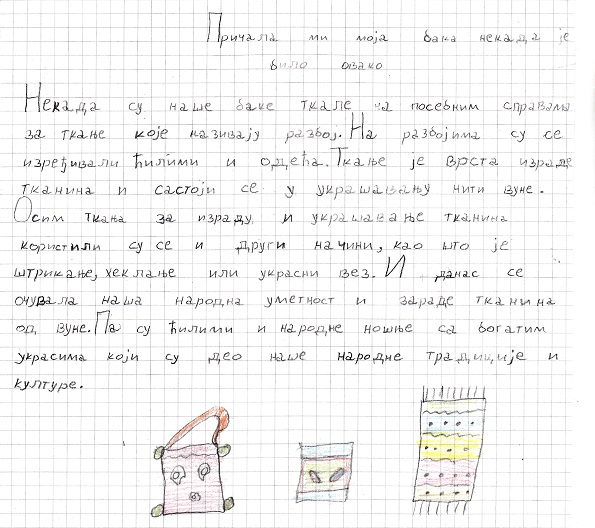 Причала ми моја бака некада је
било овако
Некада су наше баке ткале на посебним справама
за ткање које називају разбој. На разбојима су се
изређивали ћилими и одећа. Ткање је врста израде
тканина и састоји се у украшавању нити вуне.
Осим ткања за израду и украшавање тканина
користили су се и други начини, као што је
штрикање, хеклање или украсни вез. И данас се
очувала наша народна уметност и зараде тканина
од вуне. Па су ћилими и народне ношње са богатим
украсима који су део наше народне традиције и
културе.